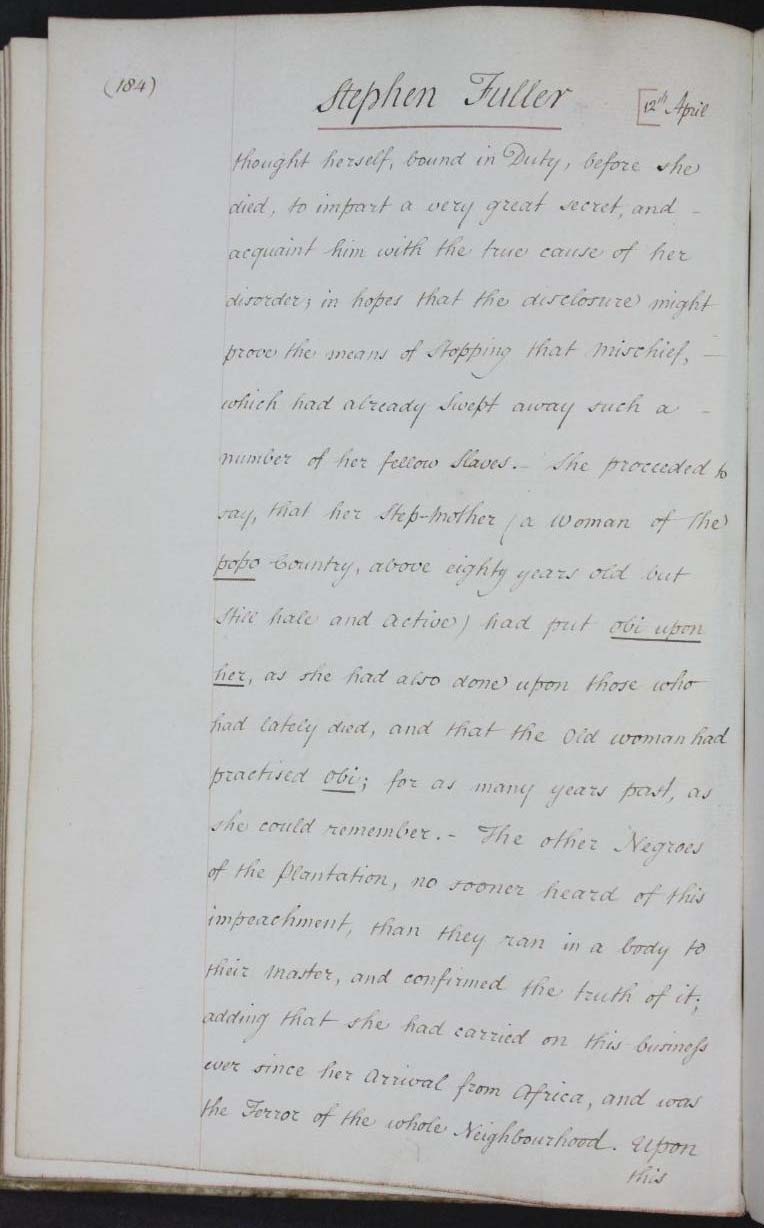 (184)
Stephen Fuller
[12th April
thought herself, bound in Duty, before she
died, to impart a very great secret, and -
acquaint him with the true cause of her
disorder; in hopes that the disclosure might
prove the means of Stopping that Mischief, -
which had already Swept away such a -
number of her fellow Slaves. - She proceeded to
say, that her Step-Mother (a Woman of the
popo Country, above eighty years old but
Still hale and active) had put obi upon
her, as she had also done upon those who
had lately died, and that the Old woman had
practised Obi; for as many years past, as
she could remember. - The other Negroes
of the Plantation, no sooner heard of this
impeachment, than they ran in a body to
their Master, and confirmed the truth of it;
adding that she had carried on this business
ever since her Arrival from Africa, and was
the Terror of the whole Neighbourhood. Upon
this